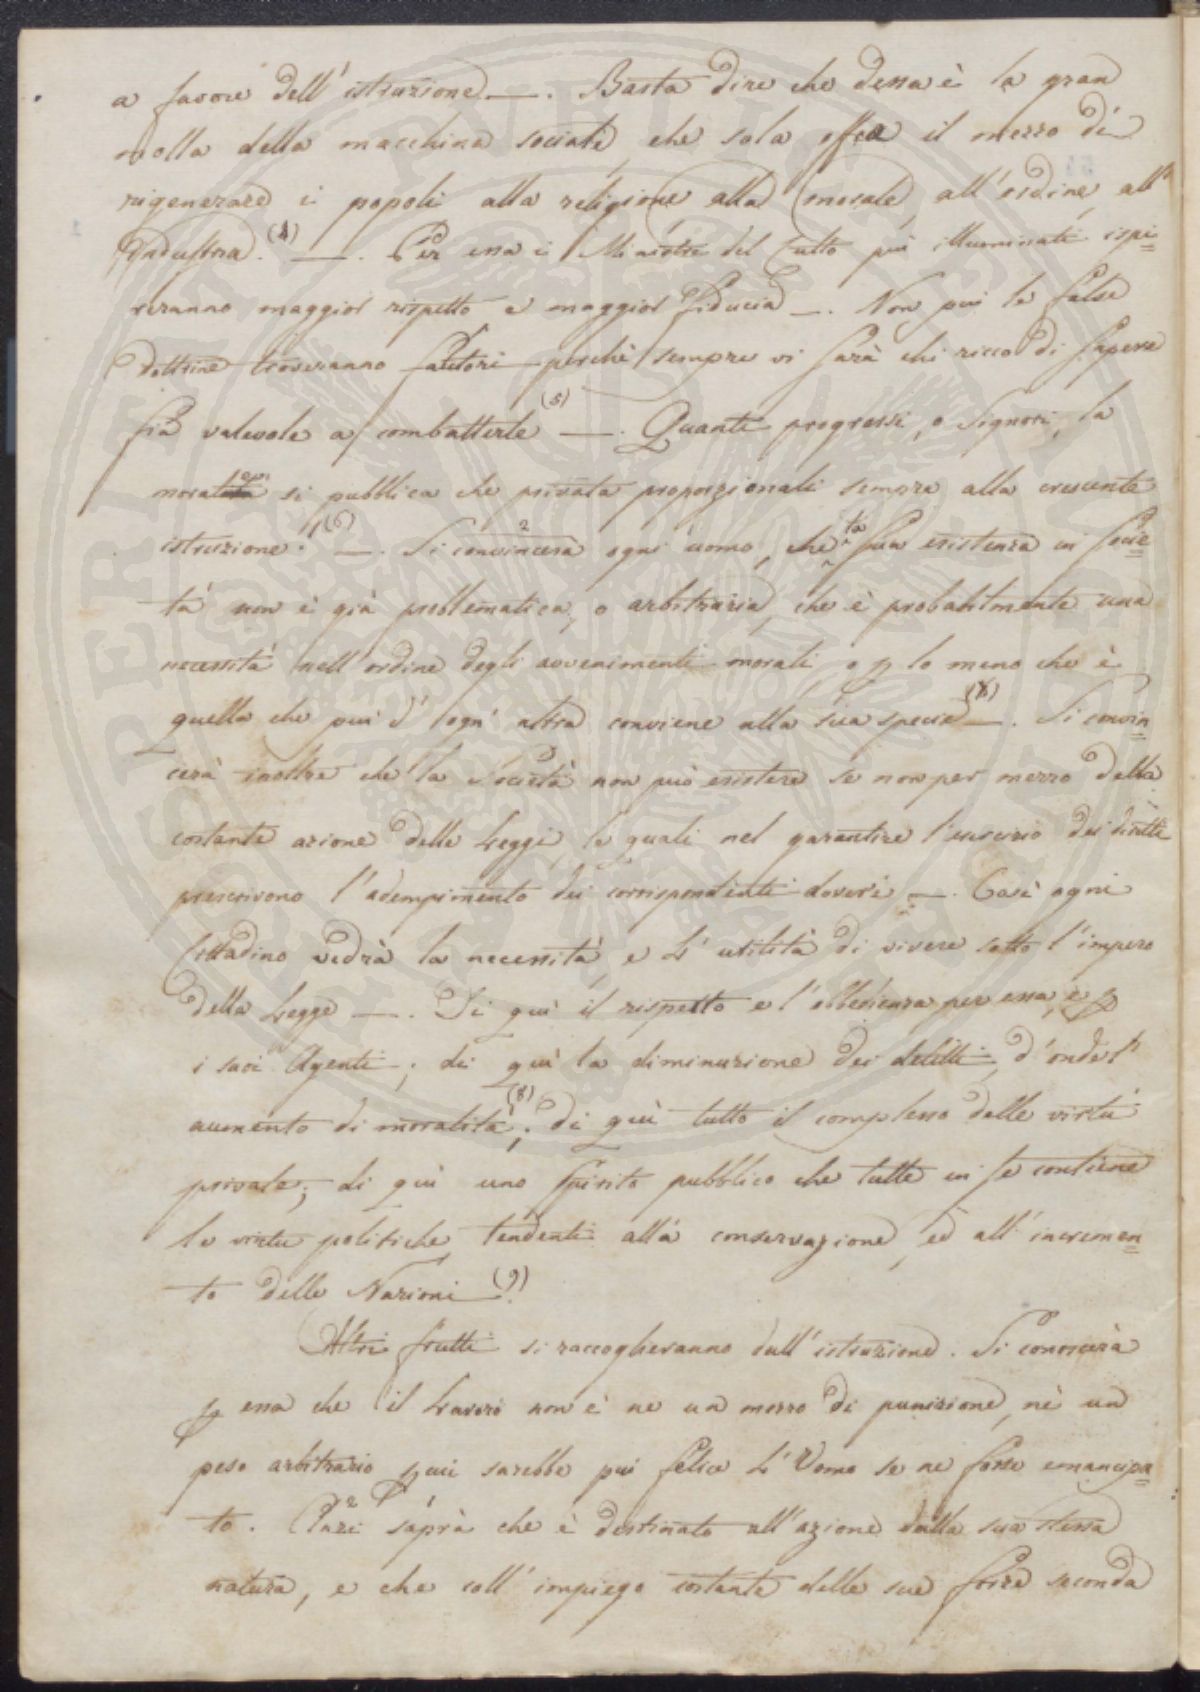 a favore dell'istruzione —. Basta dire che dessa è la gran
molla della macchina sociale, che sola offre il mezzo di
rigenerare i popoli alla religione, alla morale, all'ordine, all'
Industria. (4) —. Per essa i Ministri del Culto più illuminati ispi=
reranno maggior rispetto e maggior fiducia —. Non più le false
dottrine troveranno fautori perchè sempre vi sarà chi ricco di sapere
sia valevole a combatterle (5) —. Quanti progressi, o Signori, la
morale si pubblica che privata proporzionali sempre alla crescente
istruzione. (6) —. Si convincerà 2 ogni uomo, che la sua esistenza in Socie=
tà non è già problematica, o arbitraria, che è probabilmente una
necessità nell'ordine degli avvenimenti morali, o p lo meno che è
quella che più d'ogn'altra conviene alla sua specie (7) —. Si convin=
cerà inoltre che la Società non può esistere se non per mezzo della
costante azione delle Leggi, le quali nel garantire l'esercizio dei diritti
prescrivono l'adempimento dei corrispondenti doveri —. Così ogni
Cittadino vedrà la necessità, e l'utilità di vivere sotto l'impero
della Legge —. Di quì il rispetto e l'obbedienza per essa, e p
i suoi Agenti; di quì la diminuzione dei delitti, d'onde l'
aumento di moralità (8); di quì tutto il complesso delle virtù
private; di quì uno spirito pubblico che tutte in se contiene
le virtù politiche tendenti alla conservazione, ed all'incremen=
to delle Nazioni (9).
Altri frutti si raccoglieranno dall'istruzione. Si conoscerà
p essa che il Lavoro non è ne un mezzo di punizione, nè un
peso arbitrario p cui sarebbe più felice L'Uomo se ne fosse emancipa=
to. 2 Anzi 1 saprà che è destinato all'azione dalla sua stessa
natura, e che coll'impiego costante delle sue forze seconda